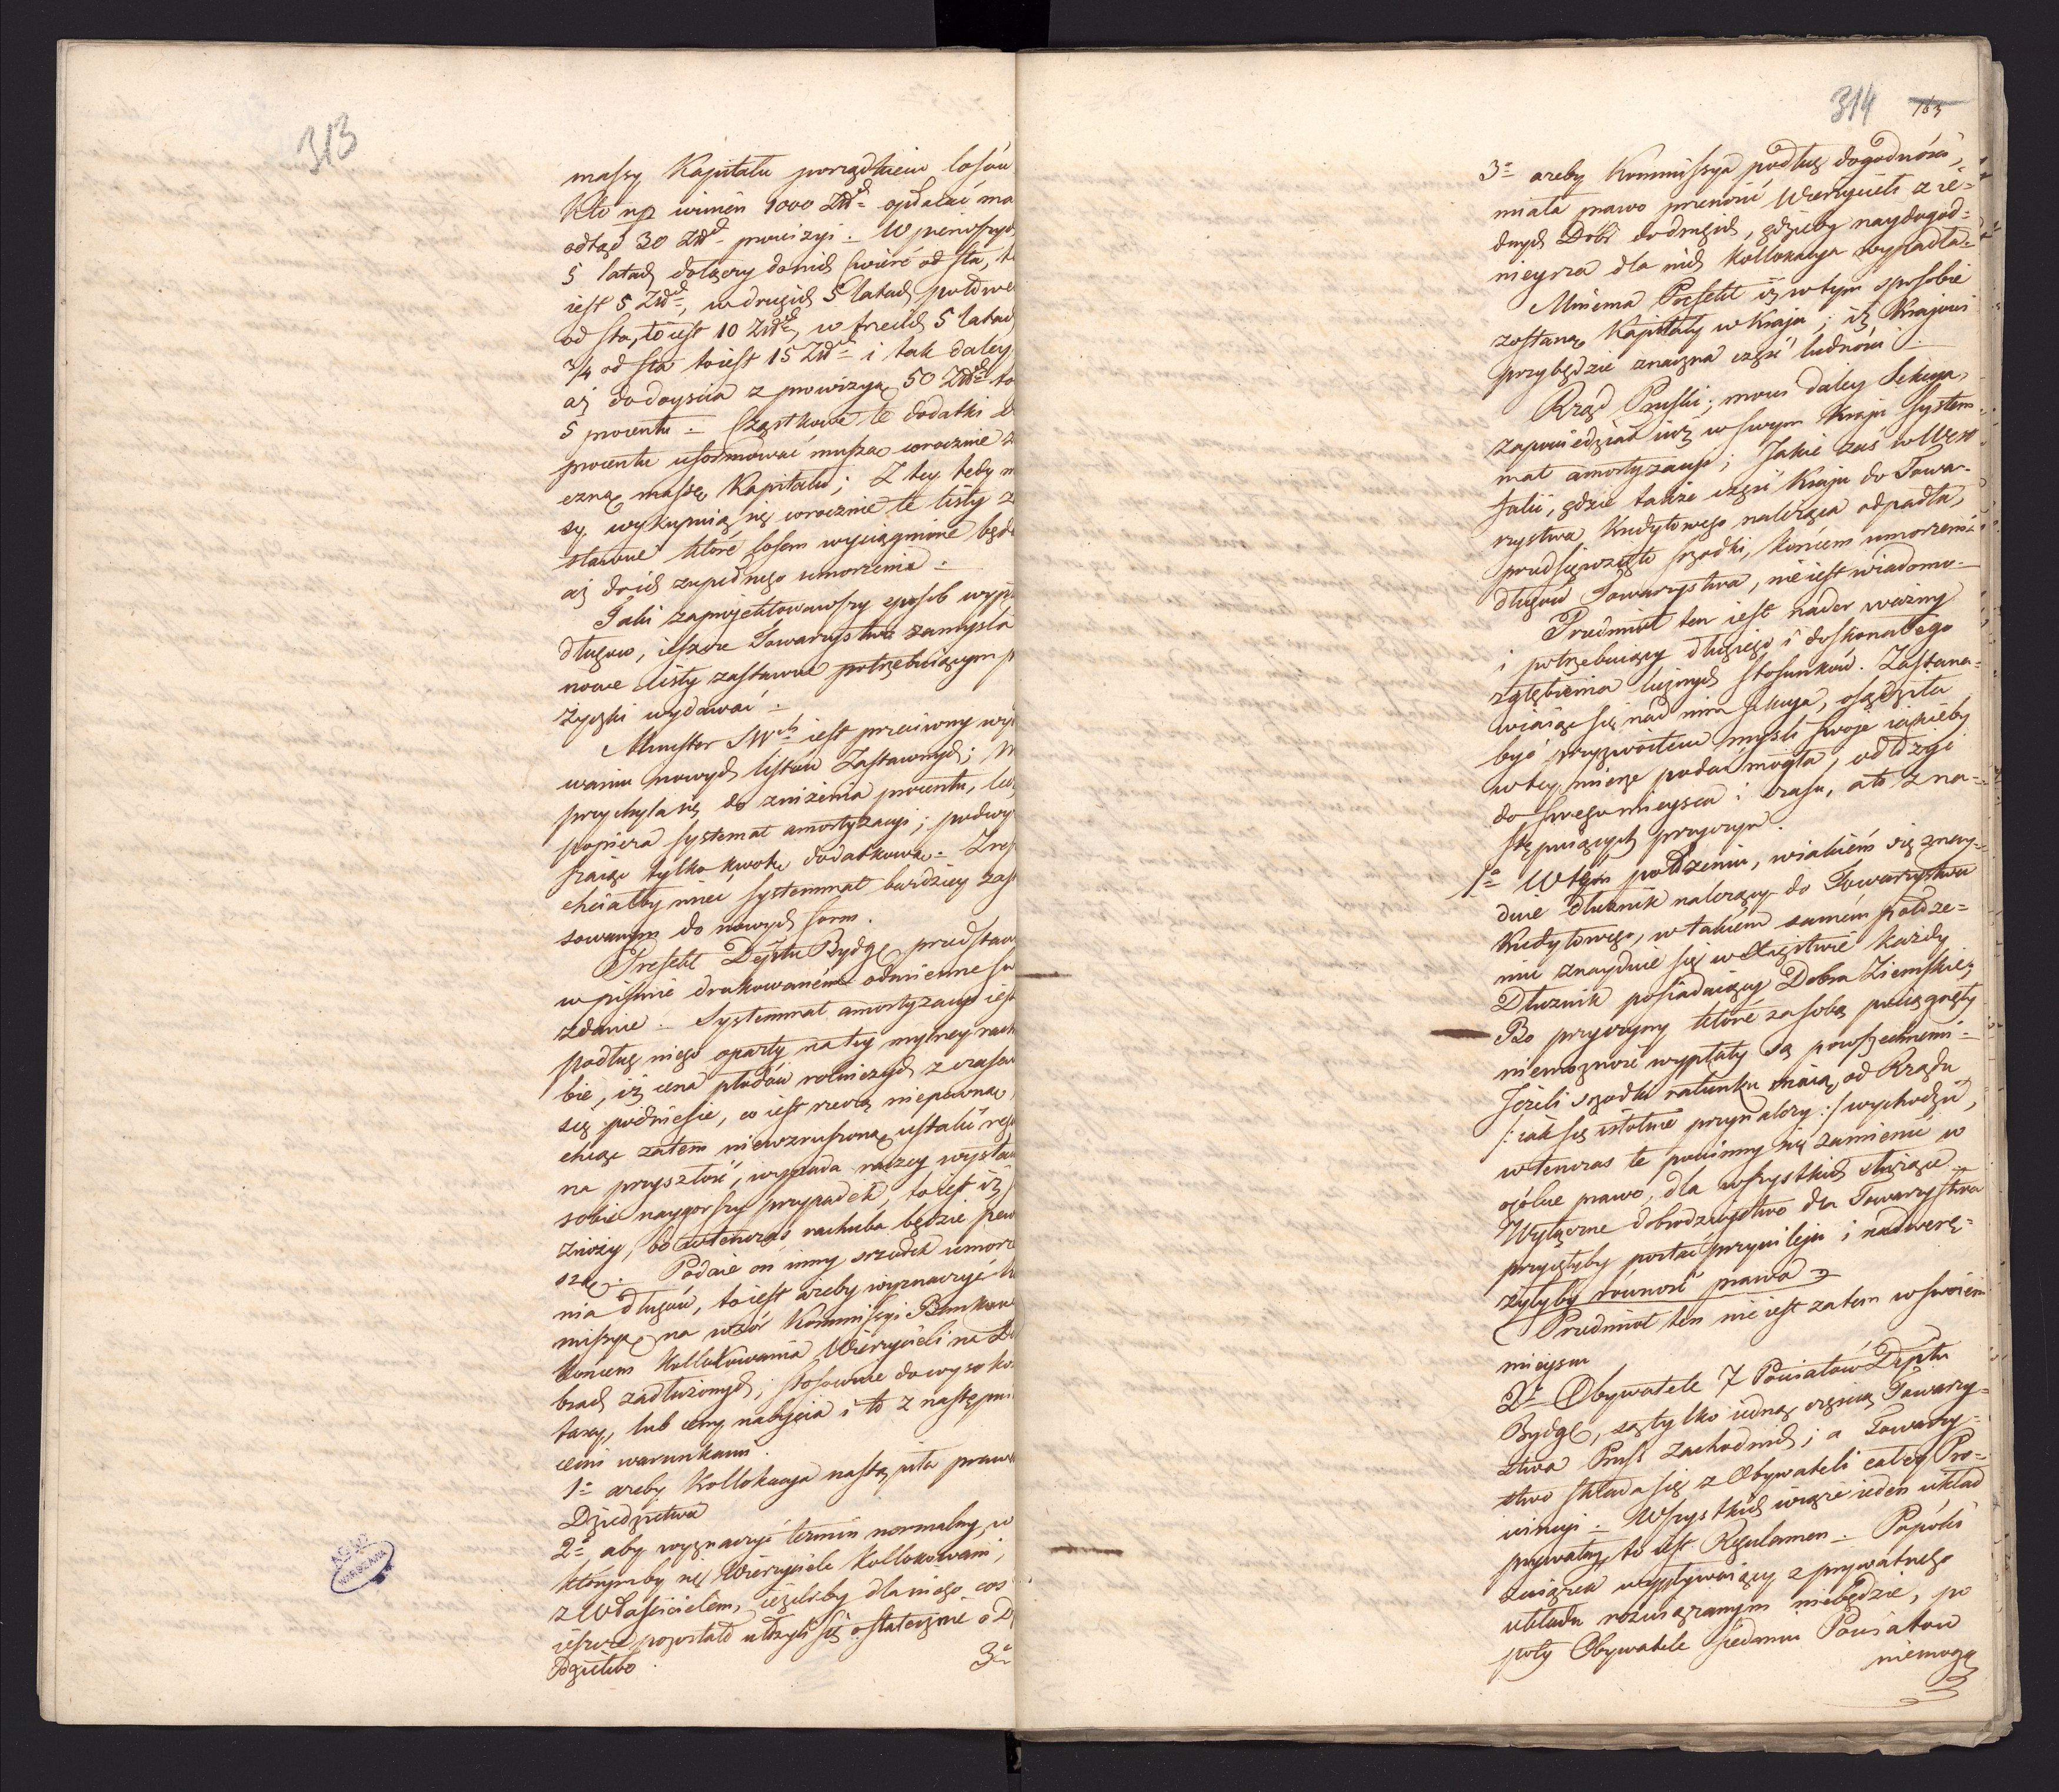 313
massy Kapitału porządkiem losów
Kto np winien 1000 Złłd opłacać ma
odtąd 30 Złłd prowizyi. W pierwszych
5 latach dołączy do nich ćwierć od sta, to
iest 5 Złłd, w drugich 5 latach połowę
od sta, to iest 10 Złłd, w trzecich 5 latach
3/4 od sta to iest 15 Złłd i tak daley
aż do doyścia z prowizyą 50 Złłd to
5 procentu. Cząstkowe te dodatki do
procentu uformować muszą corocznie
czną massę Kapitału; Z tey tedy m
sy wykupuią się corocznie te listy za
stawne które losem wyciągnione będą
aż do ich zupełnego umorzenia.
Taki zaproiektowawszy sposób wypła
długów, ieszcze Towarzystwo zamyśla
nowe listy zastawne potrzebuiącym po
życzki wydawać.
Minister SWch iest przeciwny wyda
waniu nowych listów Zastawnych;
przychyla się do zniżenia procentu,
popiera systemat amortyzacyi; podwyż
szaiąc tylko kwotę dodatkową.
chciałby mieć systemmat bardziey zasto
sowanym do nowych form.
Prefekt Deptu Bydg. przedstawia
w piśmie drukowaném odmienne swe
zdanie. Systemmat amortyzacyi iest
podług niego oparty na tey mylney rach
bie, iż cena płodów rolniczych z czasem
się podniesie, co iest rzeczą niepewną,
chcąc zatem niewzruszoną ustalić reg
na przyszłość, wypada raczey wystaw
sobie naygorszy przypadek, to iest iż
zniży, bo wtenczas rachuba będzie pew
szą. Podaie on inny srzodek umorze
nia długów, to iest ażeby wyznaczyć Ko
missyą na wzór Kommissyi Bankowey
końcem kollokowania Wierzycieli na Do
brach zadłużonych, stosownie do wysokości
taxy, lub ceny nabycia i to z następui
cemi warunkami.
1o ażeby Kollokacya nastąpiła prawem
Dziedzictwa
2o, aby wyznaczyć termin normalny, w
którymby się Wierzyciele kollokowani,
z Właścicielem, ieżeliby dla niego coś
ieszcze pozostało ułożyli się ostatecznie o D
Dzictwo.
3o
314 163
3o ażeby Kommissya podług dogodności,
miała prawo przenosić Wierzycieli z ie=
dnych Dóbr do drugich, gdzieby naydogod=
nieysza dla nich kollokacya wypadła.
Mniema Prefekt iż w tym sposobie
zostaną Kapitały w Kraju; iż Krajowi
przybędzie znaczna część ludności.
Rząd Pruski; mowi daley Sekcya,
zapowiedział iuż w swym Kraju system
mat amortyzacyi; Jakie zaś w West
falii, gdzie także część Kraju do Towa-
rzystwa Kredytowego należąca odpadła,
przedsięwzięto srzodki, końcem umorzenia
długów Towarzystwa, nie iest wiadomo.
Przedmiot ten iest nader ważny
i potrzebuiący długiego i doskonałego
zgłębienia licznych stosunków. Zastana=
wiaiąc się nad nim Sekcya, osądziła
być przyzwoitem myśli swoje iakieby
w tey mierze podać mogła, odłożyć
do swego mieysca i czasu, a to z na=
stępuiących przyczyn.
1o W tym położeniu, w iakiém się znay=
duie dłużnik należący do Towarzystwa
Kredytowego, w takiém samém położe=
niu znayduie się w Xięstwie każdy
Dłużnik posiadaiący Dobra Ziemskie;
Bo przyczyny które za sobą pociągnęły
niemożność wypłaty są powszechnemi.
Jeżeli srzodki ratunku maią od Rządu
/: iak się istotnie przynależy :/ wychodzić,
wtenczas te powinny się zamienić w
ogólne prawo, dla wszystkich służące.
Wyłączne dobrodzieystwo dla Towarzystwa
przyięłyby postać przywileju i nadwerę=
żyłyby równość prawa.
Przedmiot ten nie iest zatem w swoiem
mieyscu
2o Obywatele 7 Powiatów Deptu
Bydg, są tylko iedną częścią Towarzy=
stwa Pruss Zachodnich; a Towarzy=
stwo składa się z Obywateli całey Pro=
wincyi. Wszystkich wiąże ieden układ
prywatny to iest Regulamen. Popóki
związek wypływaiący z prywatnego
układu rozwiązanym niebędzie, po
poty Obywatele siedmiu Powiatów
niemogą
WARSZAWA